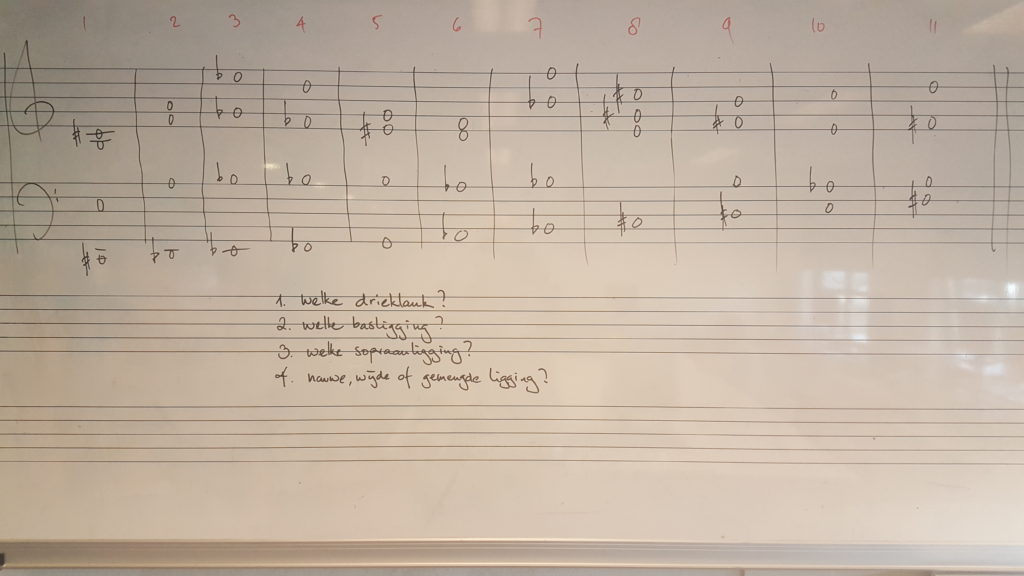 1 2 3 4 5 6 7 8 9 10 11
1. welke drieklank?
2. welke basligging?
3. welke sopraanligging?
4. nauwe, wijde of gemengde ligging?